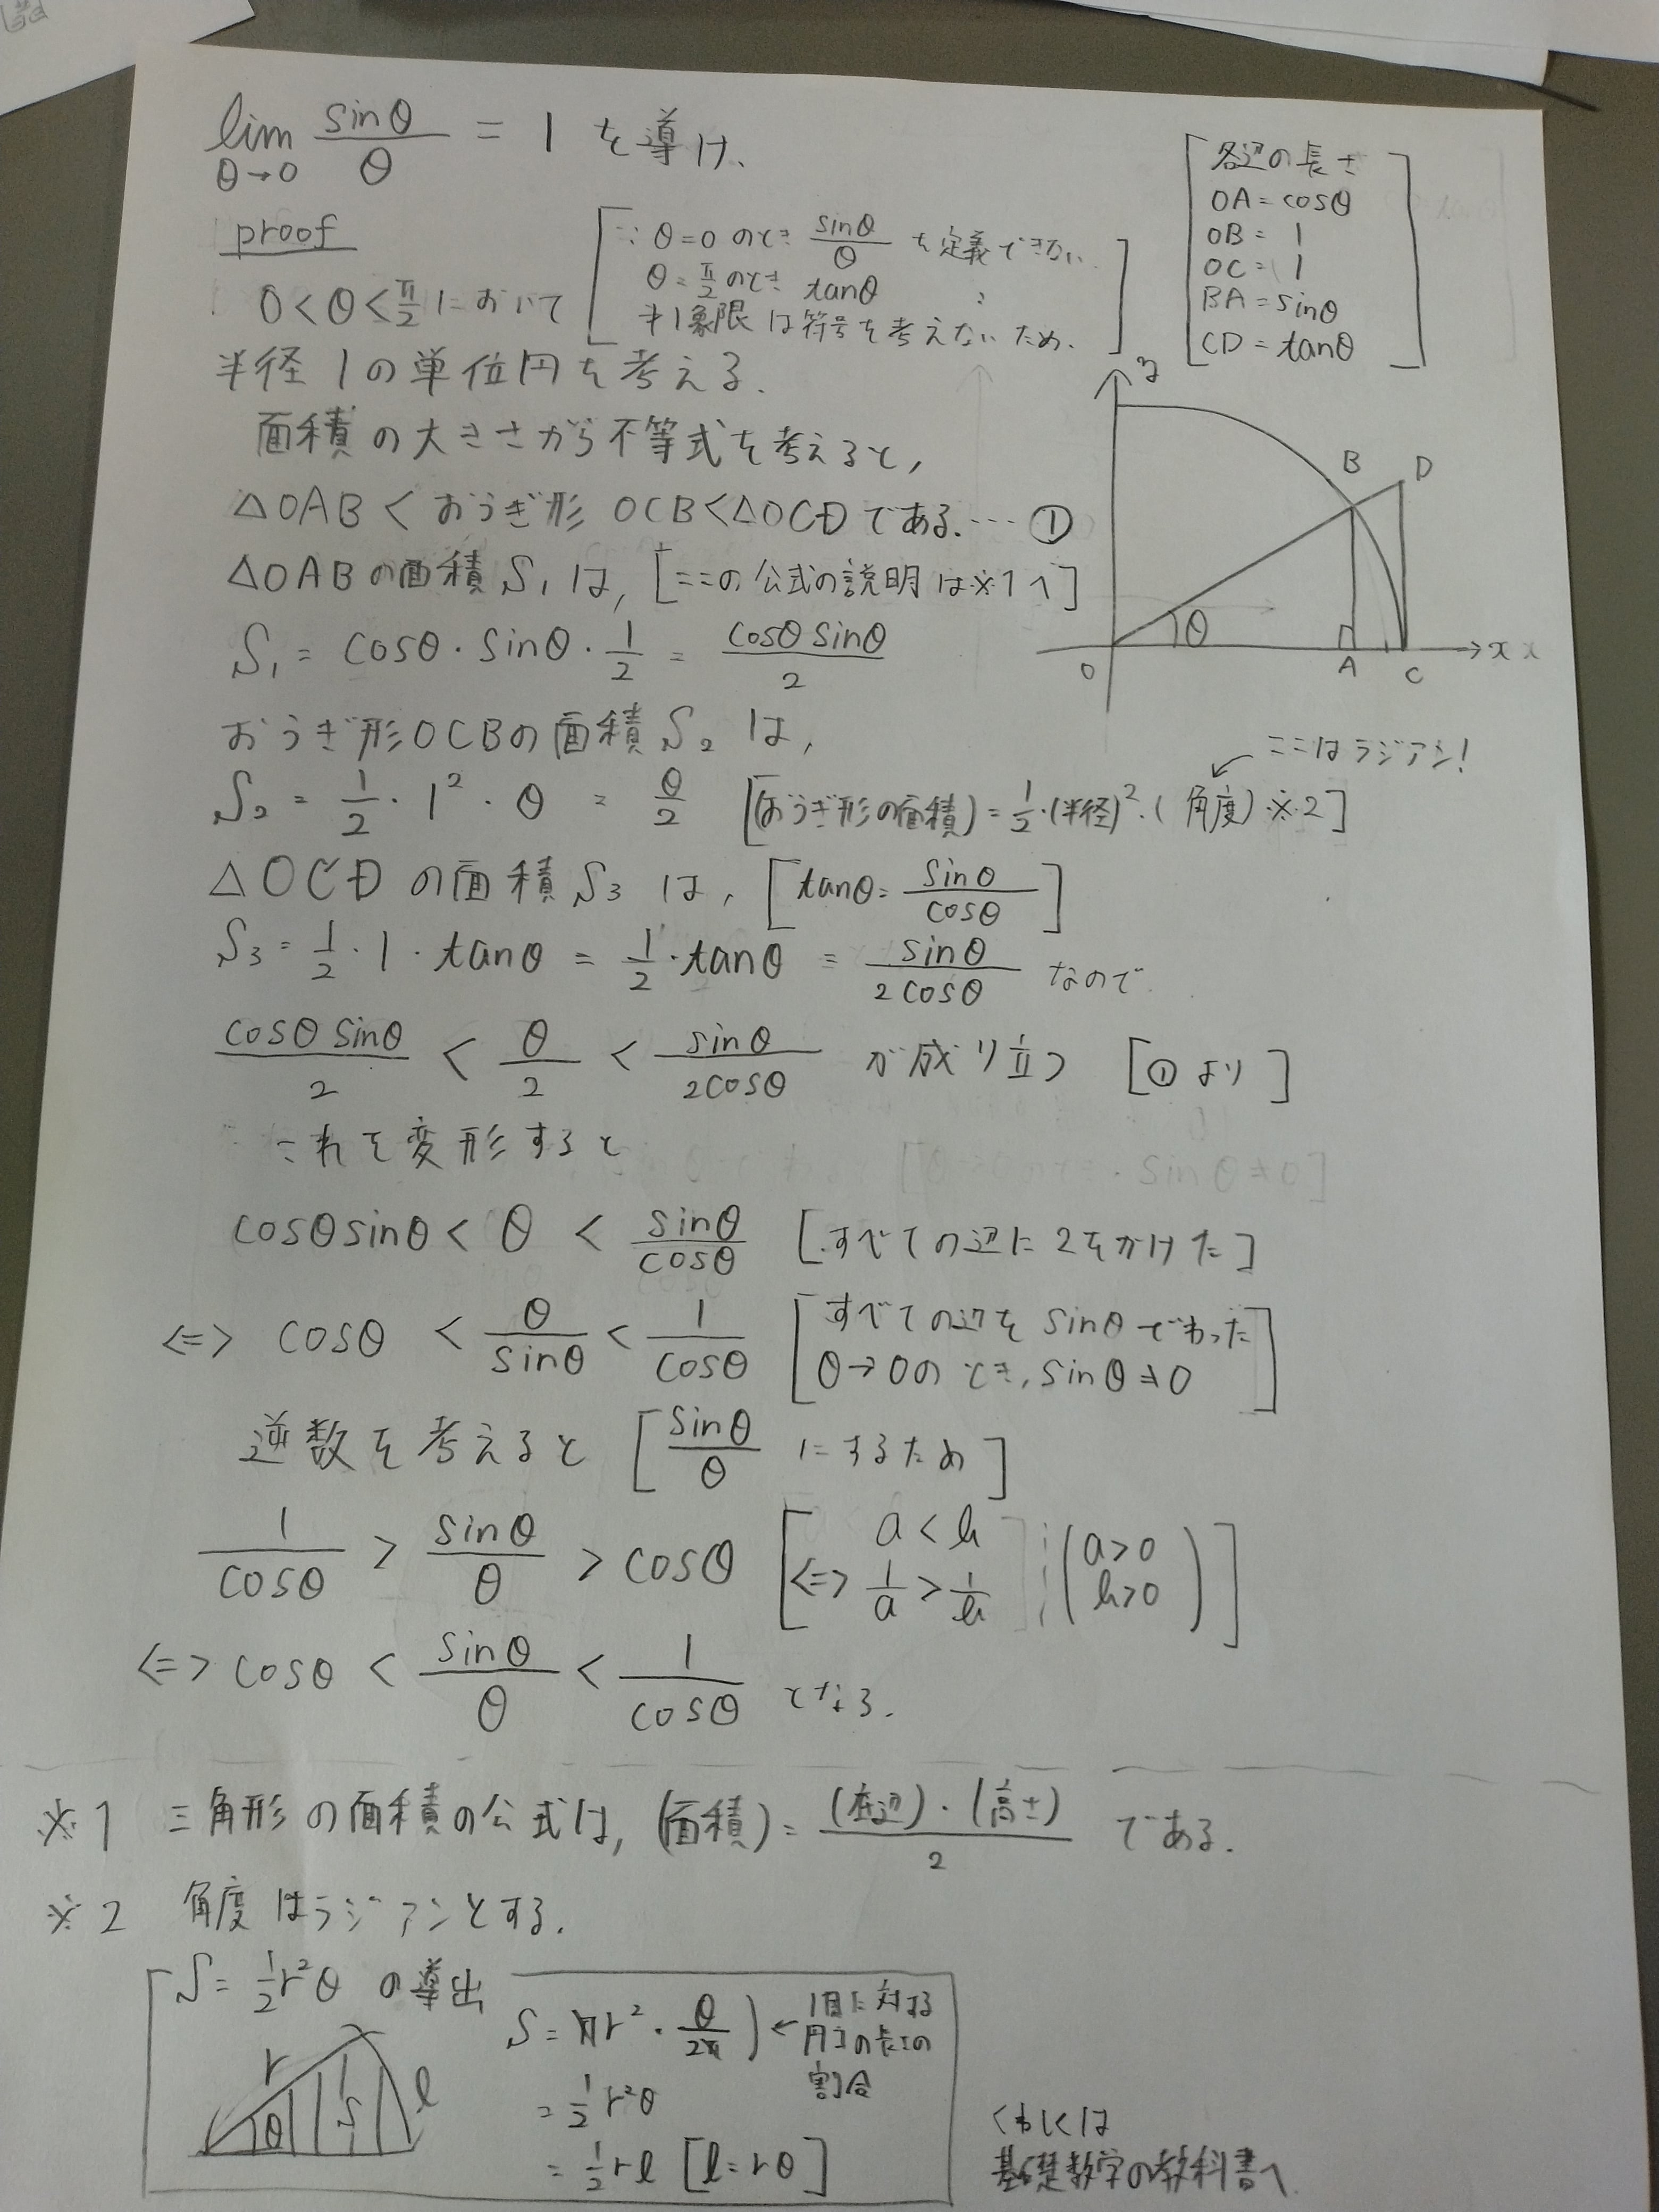 lim θ→0 sinθ/θ = 1 を導け、
proof
0<θ<π/2 において
[∵ θ=0 のとき sinθ/θ を定義できない
θ=π/2 のとき tanθ 〃
第1象限は符号を考えないため、]
[各辺の長さ
OA=cosθ
OB= 1
OC= 1
BA=sinθ
CD=tanθ]
半径1の単位円を考える.
面積の大きさから不等式を考えると,
△OAB < おうぎ形 OCB < △OCD である.… ①
△OABの面積S₁は, [ここの公式の説明は※1へ]
S₁= cosθ・sinθ・1/2 = cosθ sinθ/2
y
B
D
θ
O
A
C
x
x
おうぎ形OCBの面積S₂は,
ここはラジアン!
S₂ = 1/2・1²・θ = θ/2 [(おうぎ形の面積)=1/2・(半径)²・(角度)※2]
△OCDの面積S₃は, [tanθ= sinθ/cosθ]
S₃= 1/2・1・tanθ = 1/2・tanθ = sinθ/2cosθ なので
cosθ sinθ/2 < θ/2 < sinθ/2cosθ が成り立つ [①より]
これを変形すると
cosθsinθ < θ < sinθ/cosθ [すべての辺に2をかけた]
⇔ cosθ < θ/sinθ < 1/cosθ [すべての辺を sinθ でわった
θ→0のとき, sinθ≠0]
逆数を考えると [sinθ/θ にするため]
1/cosθ > sinθ/θ > cosθ [a<b
⇔ 1/a > 1/b ∵ (a>0
b>0)]
⇔ cosθ < sinθ/θ < 1/cosθ となる.
※1 三角形の面積の公式は, (面積)= (底辺)・(高さ)/2 である.
※2 角度はラジアンとする.
S= 1/2r²θ の導出
r
θ
S
l
S= πr²・θ/2π ) ← 1周に対する
円この長さの
割合
= 1/2 r²θ
= 1/2 rl [l=rθ]
くわしくは
基礎数学の教科書へ